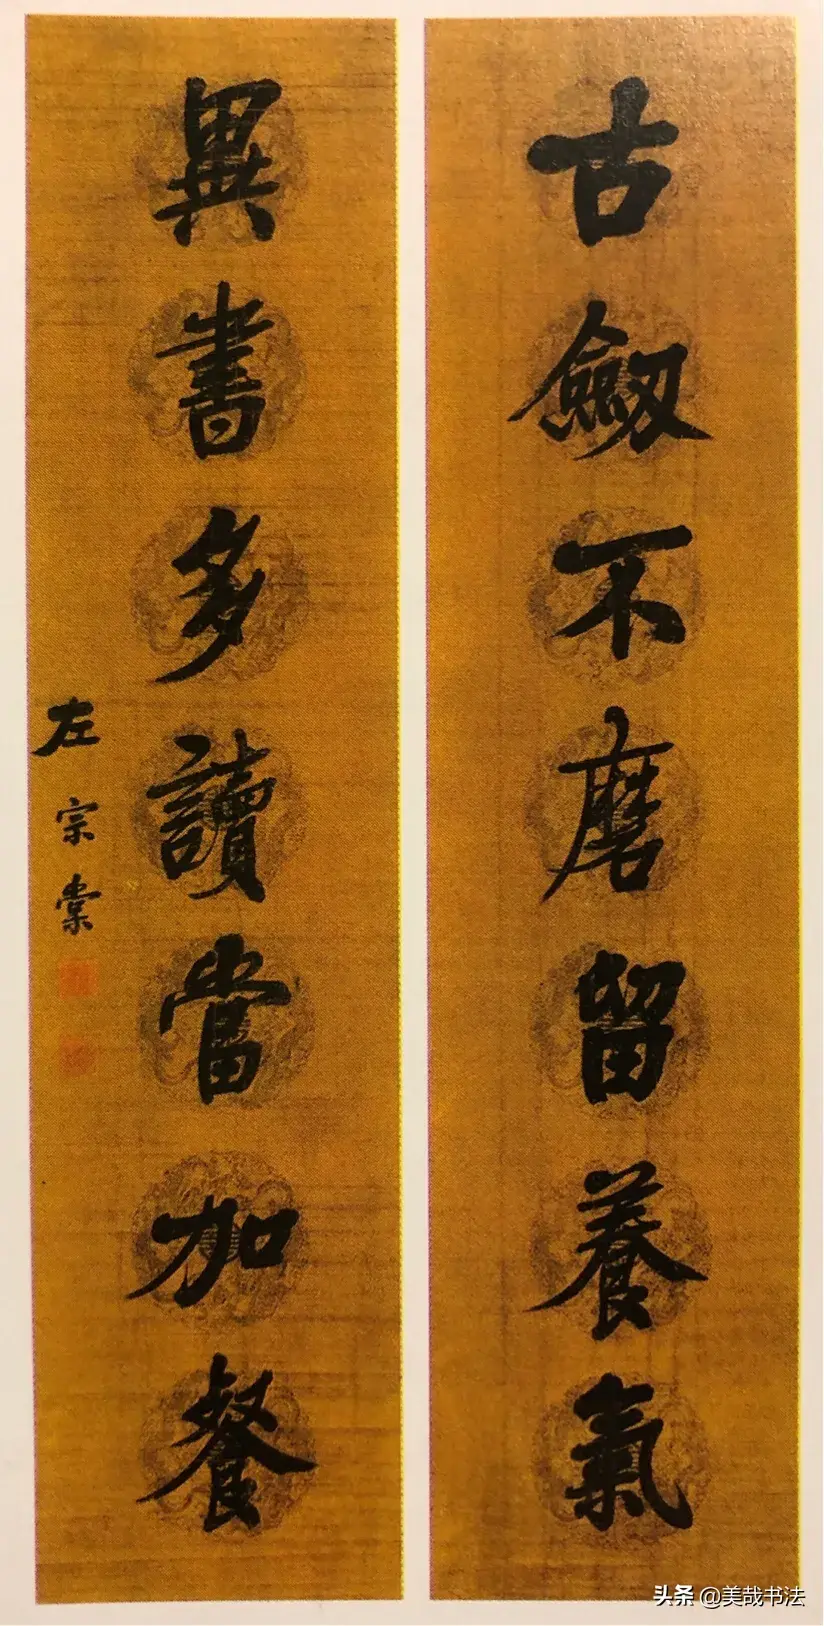 古劔不磨留養氣
異書多讀當加餐
左宗棠
头条 @美哉书法